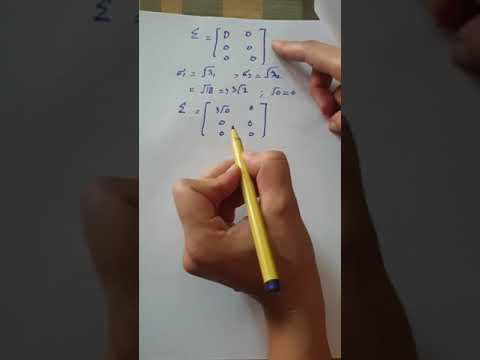 Σ = [ D 0
0 0
0 0 ]
σ₁ = √λ₁ , σ₂ = √λ₂
= √18 = 3√2 ; √0 = 0
Σ = [ 3√0 0
0 0
0 0 ]